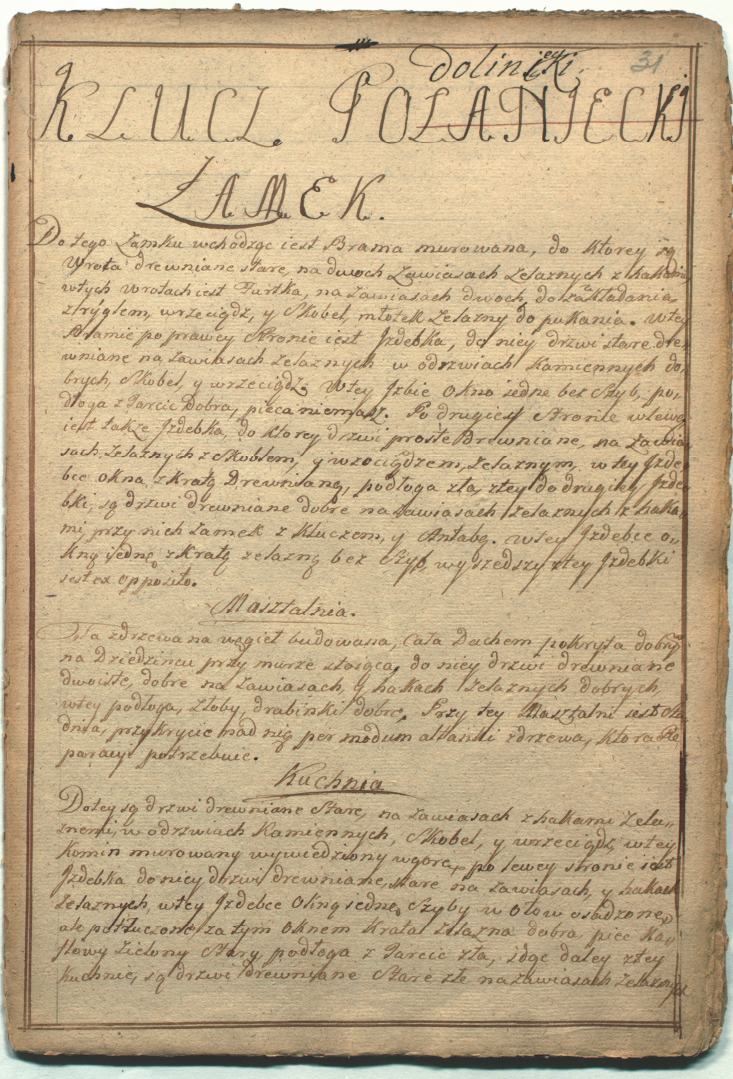 doliński
31
KLUCZ POŁANIECKI
ZAMEK.
Do tego Zamku wchodząc iest Brama murowana, do ktorey są
Wrota drewniane stare, na dwoch Zawiasach Zelaznych z hakami
wtych wrotach iest Furtka, na zawiasach dwoch, do zakładania
z ryglem, wrzeciądz, y Skobel, młotek Zelazny do pukania. Wtey
Bramie po prawey Stronie iest Izdebka, do niey drzwi stare dre-
wniane na zawiasach zelaznych w odrzwiach kamiennych do-
brych, Skobel, y wrzeciądz. Wtey Izbie Okno iedne bez Szyb, po-
dłoga z Tarcic Dobra, pieca niemasz. Po drugiey Stronie wlewo
iest także Izdebka, do ktorey drzwi proste Drewniane, na Zawia-
sach Zelaznych z Skoblem, y wrzeciądzem Zelaznym, w tey Izde-
bce okna z kratą Drewnianą, podłoga zła, z tey do drugiey Izde-
bki, są drzwi drewniane dobre na Zawiasach zelaznych z haka-
mi, przy nich Zamek z Kluczem, y Antabą. w tey Izdebce o-
kno iedne z kratą zelazną bez Szyb, wyszedszy z tey Izdebki
iest ex opposito.
Masztalnia.
Ta z drzewa na węgieł budowana, cała Dachem pokryta dobrym
na Dziedzincu przy murze stoiąca, do niey drzwi drewniane
dwoiste, dobre na zawiasach, y hakach zelaznych dobrych,
wtey podłoga, złoby, drabinki dobre. Przy tey Masztalni iest stu-
dnia, przykrycie nad nią per modum altanki z drzewa, ktora Re-
paracyi potrzebuie.
Kuchnia
Do tey są drzwi drewniane Stare, na zawiasach z hakami Zela-
znemi, w odrzwiach Kamiennych, Skobel, y wrzeciądz, w tey
Komin murowany wywiedziony wgorę, po lewey stronie iest
Izdebka do niey drzwi drewniane, stare na zawiasach, y hakach
Zelaznych, w tey Izdebce Okno iedne, Szyby w ołow osadzone,
ale potłuczone, za tym Oknem Krata zelazna dobra, piec Ka-
flowy Zielony Stary, podłoga z Tarcic zła, idąc daley z tey
Kuchnie, są drzwi drewniane Stare złe na zawiasach Zelaznych